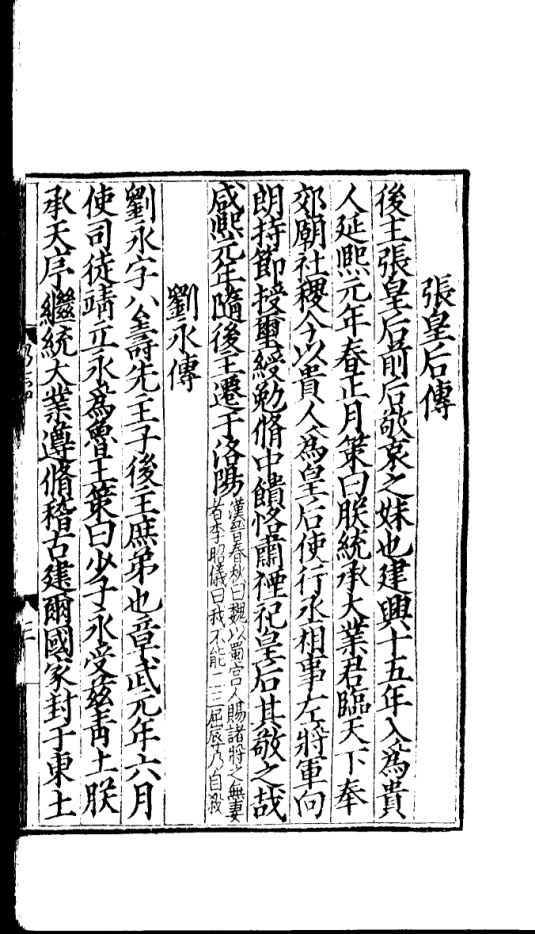 張皇后傳
後主張皇后前后敬哀之妹也建興十五年入爲貴
人延熙元年春正月策曰朕統承大業君臨天下奉
郊廟社稷今以貴人爲皇后使行丞相事左將軍向
朗持節授璽綬勉脩中饋恪肅禋祀皇后其敬之哉
咸熙元年隨後主遷于洛陽
漢晉春秋曰魏以蜀宮人賜諸將之無妻
者李昭儀曰我不能二三屈辱乃自殺
劉永傳
劉永字公壽先主子後主庶弟也章武元年六月
使司徒靖立永爲魯王策曰少子永受茲青土朕
承天序繼統大業遵脩稽古建爾國家封于東土